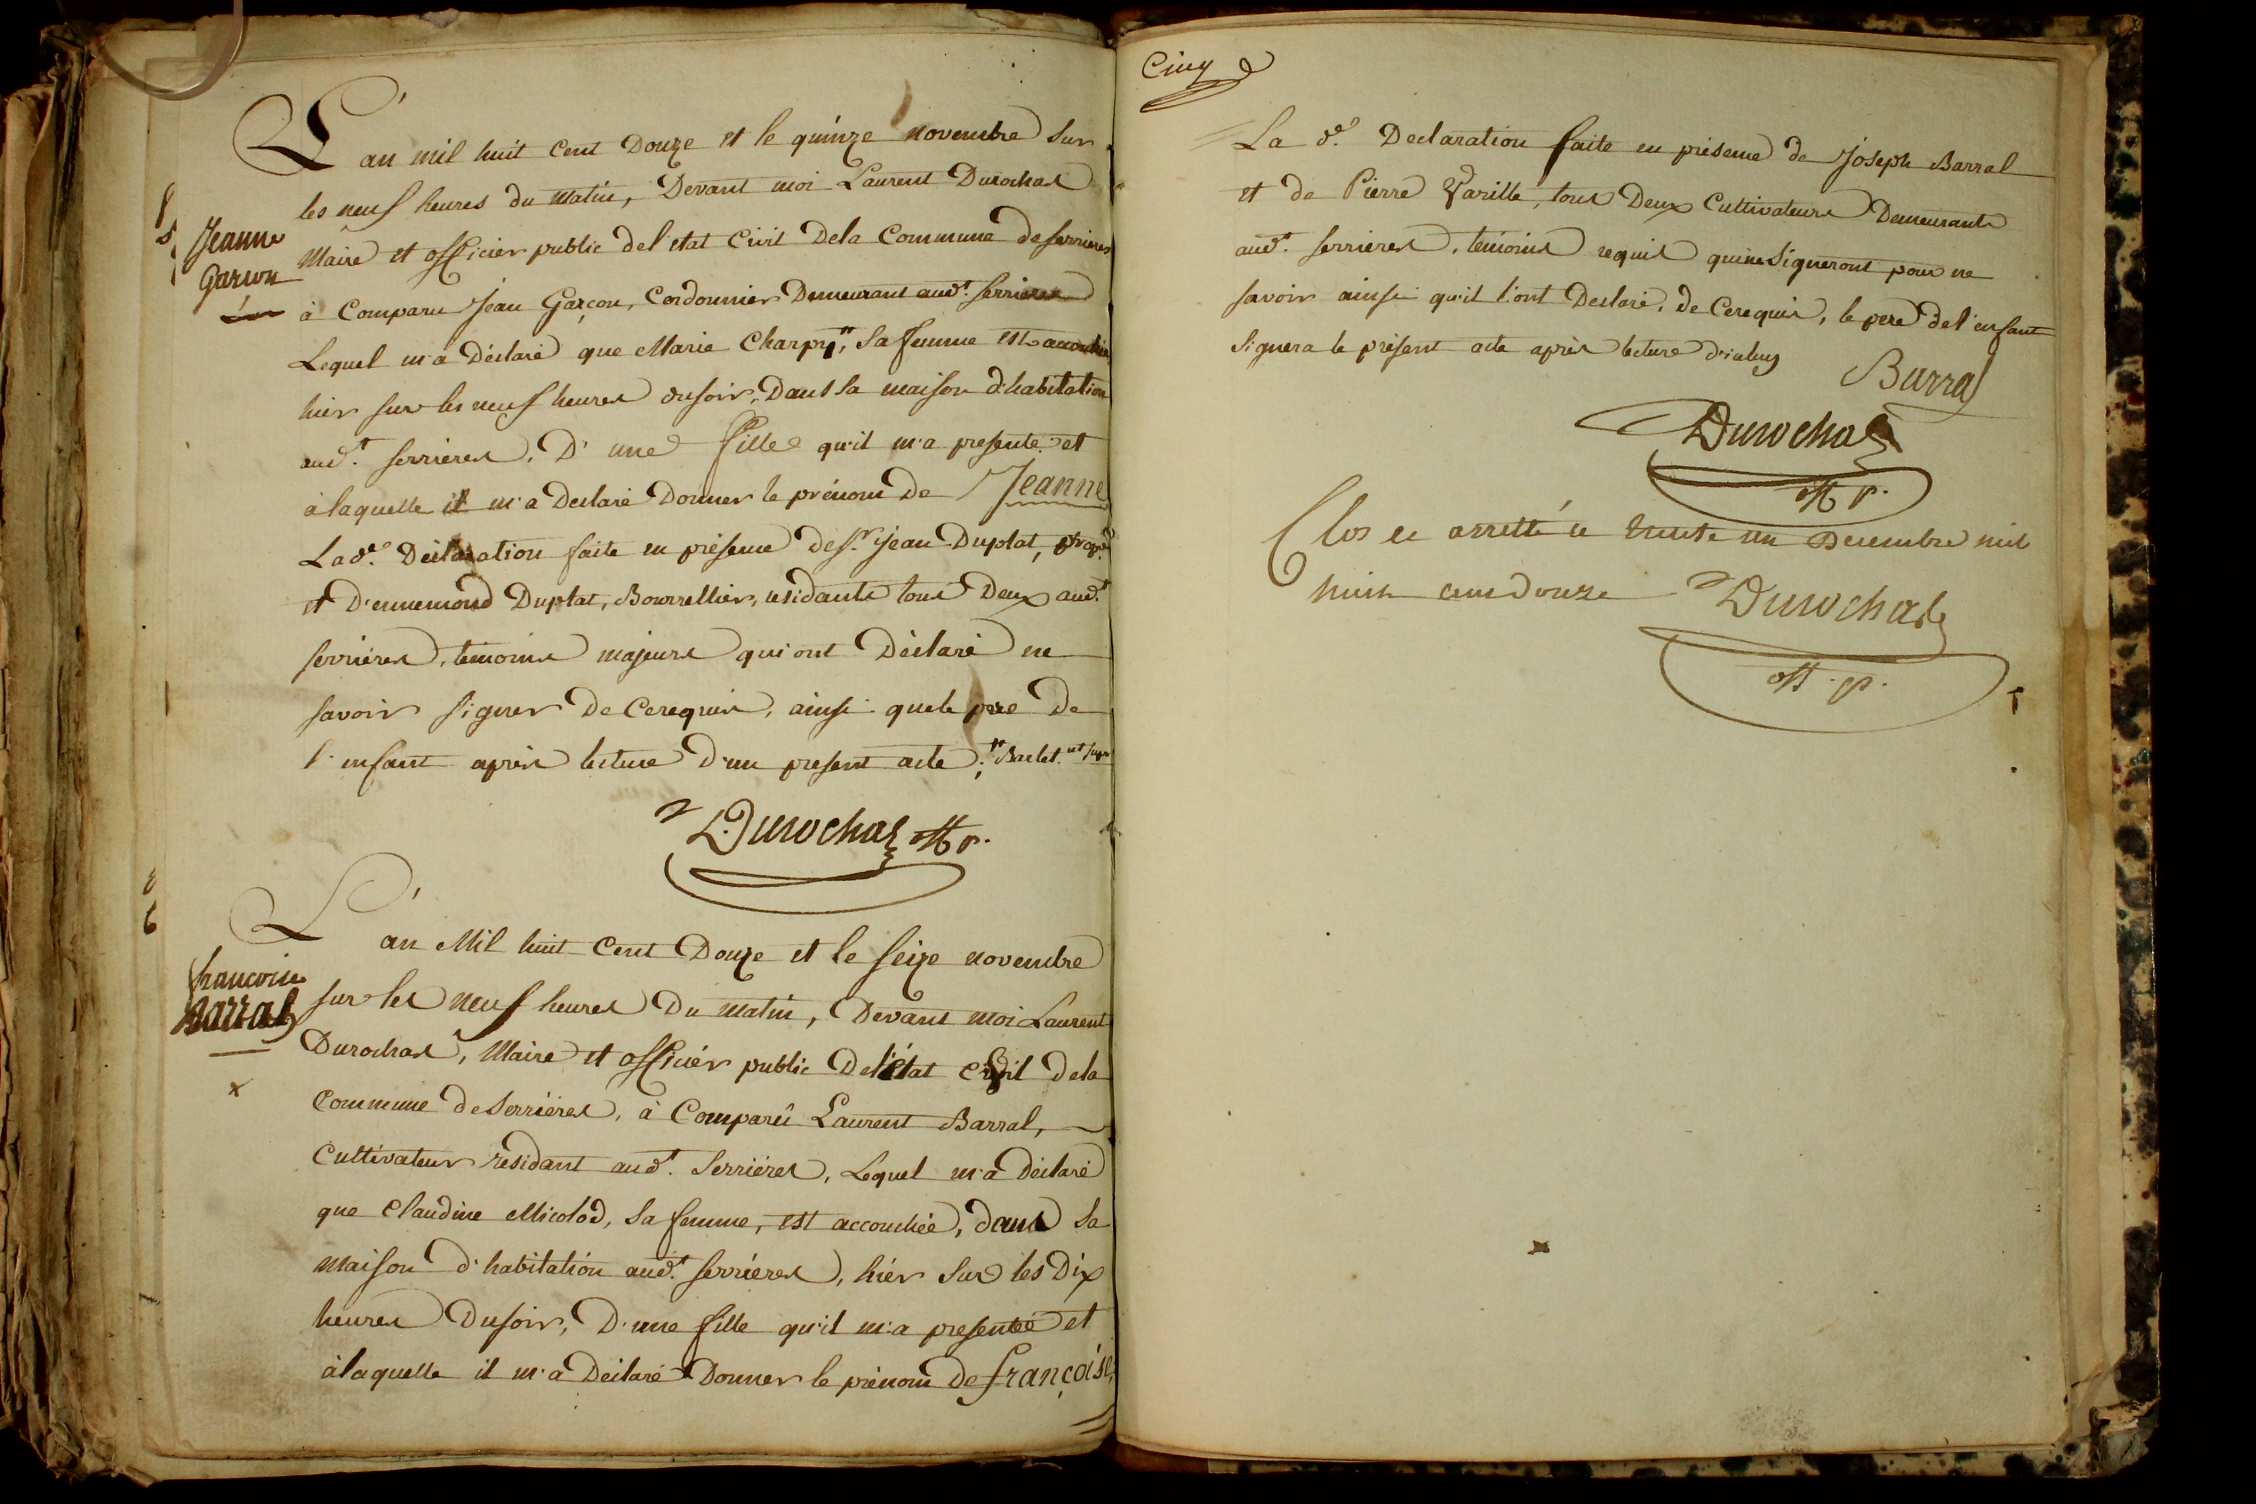 L'an mil huit cent Douze et le quinze novembre sur
les neuf heures du matin, Devant moi Laurent Durochat
Maire et officier public de l'etat Civil Dela Commune de serrieres
à Comparu Jean Garçon, Cordonnier Demeurant aud.t serrieres
Lequel m'a Déclaré que Marie Charpy, sa femme est accouchée
hier sur les neuf heures du soir, Dans sa maison d'habitation
aud.t serrieres, D'une fille qu'il m'a presenté et
à laquelle il m'a Declaré Donner le prénom De Jeanne
La d.e Déclaration faite en présence de s.r jean Duplat, prop.re
et D'ennemond Duplat, Bourrellier, residants tous Deux aud.t
serriéres, temoins majeurs qui ont Déclaré ne
savoir signer De Cerequis, ainsi que le pere De
l'enfant après lecture D'un present acte;
Durochat off p.
Jeanne
Garcon
5
L'an Mil huit Cent Douze et le seize novembre
sur les neuf heures Du matin, Devant moi Laurent
Durochat, Maire et officiér public De l'état Civil Dela
Commune de Serriéres, à Comparû Laurent Barral,
Cultivateur résidant aud.t Serriéres, Lequel m'a Déclaré
que Claudine Micolod, sa femme, est accouchée, dans sa
maison d'habitation aud.t serriéres, hiér sur les Dix
heures Du soir, D'une fille qu'il m'a presentée et
à laquelle il m'a Déclaré Donner le prénom De françoise,
6
francoise
Barral
x
Cinq
La d.e Declaration faite en présence de Joseph Barral
et de Pierre Varille, tous Deux Cultivateurs Demeurants
aud.t serrieres, temoins requis qui ne signeront pour ne
savoir ainsi qu'il l'ont Declaré, De Cerequis, le pere de l'enfant
signera le présent acte après lecture d'iceluy
Barral
Durochat
off p.
Clos et arretté ce trente un Decembre mil
huit cent Douze Durochat
off. p.